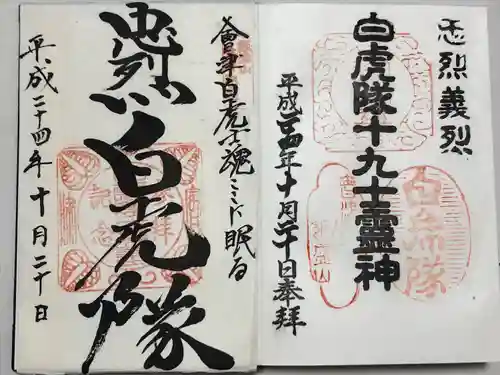 忠烈義烈
白虎隊十九士霊神
平成二十四年十月二十日奉拝
白虎隊
飯盛山
會津白虎の魂ここに眠る
忠烈白虎隊
平成二十四年十月二十日